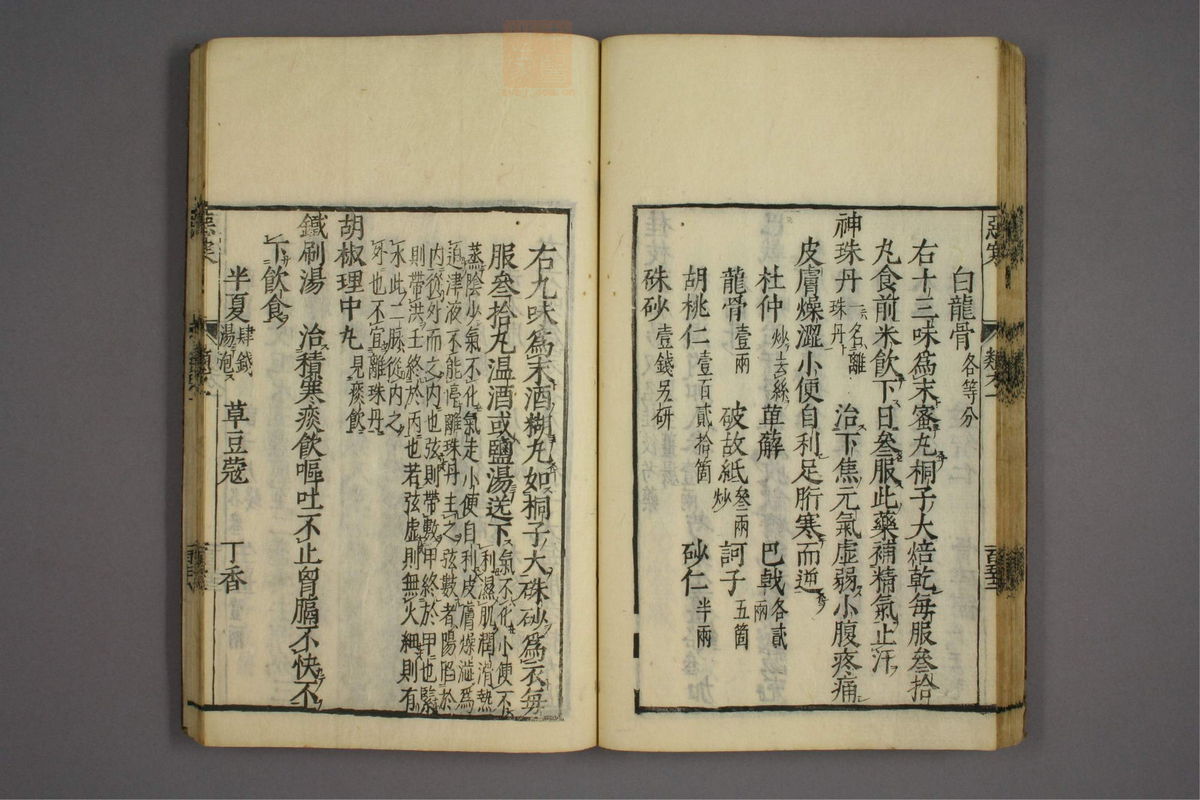 白龍骨各等分
右十三味爲末蜜丸桐子大焙乾每服叁拾
丸食前米飲下日叁服此藥補精氣止汗
神珠丹一名離珠丹 治下焦元氣虛弱小腹疼痛
皮膚燥澀小便自利足胻寒而逆
杜仲炒去絲 萆薢 巴戟各貳兩
龍骨壹兩 破故紙叁兩炒 訶子五箇
胡桃仁壹百貳拾箇 砂仁半兩
硃砂壹錢另研
右九味爲末酒糊丸如桐子大硃砂爲衣每
服叁拾丸温酒或鹽湯送下氣不化小便不利濕肌潤滑熱
蒸陰少氣不化氣走小便自利皮膚燥澁爲
迫津液不能停離珠丹主之弦數者陽陷於
內從外而之內也弦則帶數甲終於甲也緊
則帶洪壬終於丙也若弦虛則無火細則有
水此二脉從內之
牙也不宜離珠丹
胡椒理中丸見痰飲
鐵刷湯 治積寒痰飲嘔吐不止胷膈不快不
下飲食
半夏肆錢湯泡 草豆蔻 丁香
惡寒
類
惡寒
類